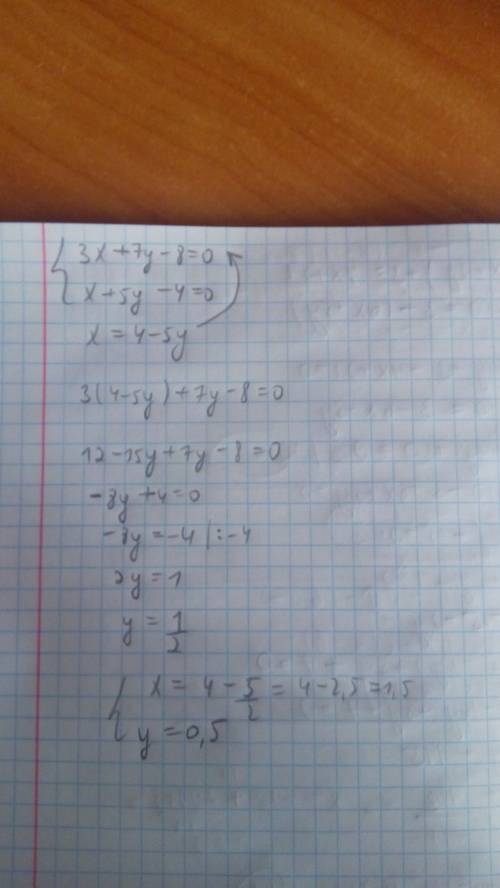 3x+7y-8=0
x+5y-4=0
x=4-5y
3(4-5y)+7y-8=0
12-15y+7y-8=0
-8y+4=0
-8y=-4 |:-4
2y=1
y=1/2
x=4-5/2=4-2,5=1,5
y=0,5